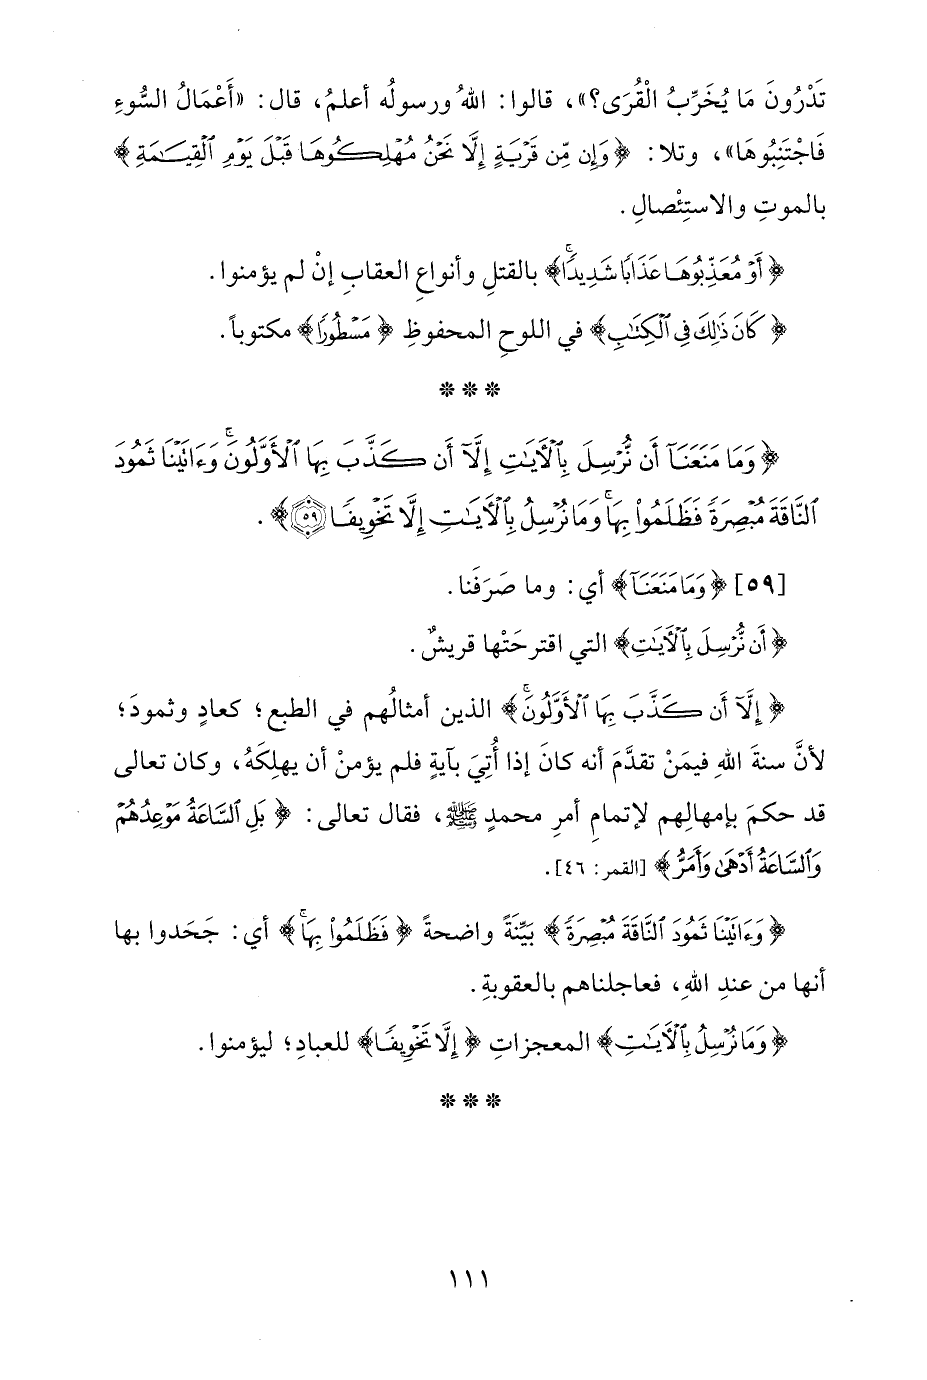 تَدْرُونَ مَا يُخَرِّبُ الْقُرَى؟»، قالوا: اللهُ ورسولُه أعلمُ، قال: «أَعْمَالُ السُّوءِ
فَاجْتَنِبُوهَا»، وتلا: ﴿وَإِن مِّن قَرْيَةٍ إِلَّا نَحْنُ مُهْلِكُوهَا قَبْلَ يَوْمِ ٱلْقِيَٰمَةِ﴾
بالموتِ والاستِئْصالِ.
﴿أَوْ مُعَذِّبُوهَا عَذَابًا شَدِيدًاۚ﴾ بالقتلِ وأنواعِ العقابِ إنْ لم يؤمنوا.
﴿كَانَ ذَٰلِكَ فِي ٱلْكِتَٰبِ﴾ في اللوحِ المحفوظِ ﴿مَسْطُورًا﴾ مكتوباً.
***
﴿وَمَا مَنَعَنَآ أَن نُّرْسِلَ بِٱلْأٓيَٰتِ إِلَّآ أَن كَذَّبَ بِهَا ٱلْأَوَّلُونَۚ وَءَاتَيْنَا ثَمُودَ
ٱلنَّاقَةَ مُبْصِرَةً فَظَلَمُوا۟ بِهَاۚ وَمَا نُرْسِلُ بِٱلْأٓيَٰتِ إِلَّا تَخْوِيفًا ۝٥٩﴾.
[٥٩] ﴿وَمَا مَنَعَنَآ﴾ أي: وما صَرَفَنا.
﴿أَن نُّرْسِلَ بِٱلْأٓيَٰتِ﴾ التي اقترحَتْها قريشٌ.
﴿إِلَّآ أَن كَذَّبَ بِهَا ٱلْأَوَّلُونَۚ﴾ الذين أمثالُهم في الطبع؛ كعادٍ وثمودَ؛
لأنَّ سنةَ اللهِ فيمَنْ تقدَّمَ أنه كانَ إذا أُتِيَ بآيةٍ فلم يؤمنْ أن يهلِكَهُ، وكان تعالى
قد حكمَ بإمهالِهم لإتمامِ أمرِ محمدٍ ﷺ، فقال تعالى: ﴿بَلِ ٱلسَّاعَةُ مَوْعِدُهُمْ
وَٱلسَّاعَةُ أَدْهَىٰ وَأَمَرُّ﴾ [القمر: ٤٦].
﴿وَءَاتَيْنَا ثَمُودَ ٱلنَّاقَةَ مُبْصِرَةً﴾ بَيِّنَةً واضحةً ﴿فَظَلَمُوا۟ بِهَاۚ﴾ أي: جَحَدوا بها
أنها من عندِ اللهِ، فعاجلناهم بالعقوبةِ.
﴿وَمَا نُرْسِلُ بِٱلْأٓيَٰتِ﴾ المعجزاتِ ﴿إِلَّا تَخْوِيفًا﴾ للعبادِ؛ ليؤمنوا.
***
١١١